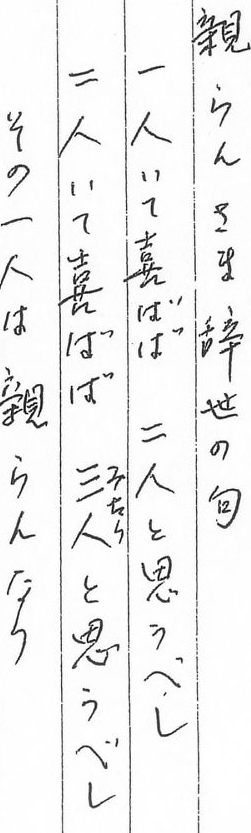 親らんさま辞世の句
一人いて喜ばば 二人と思うべし
二人いて喜ばば 三人と思うべし
その一人は親らんなり